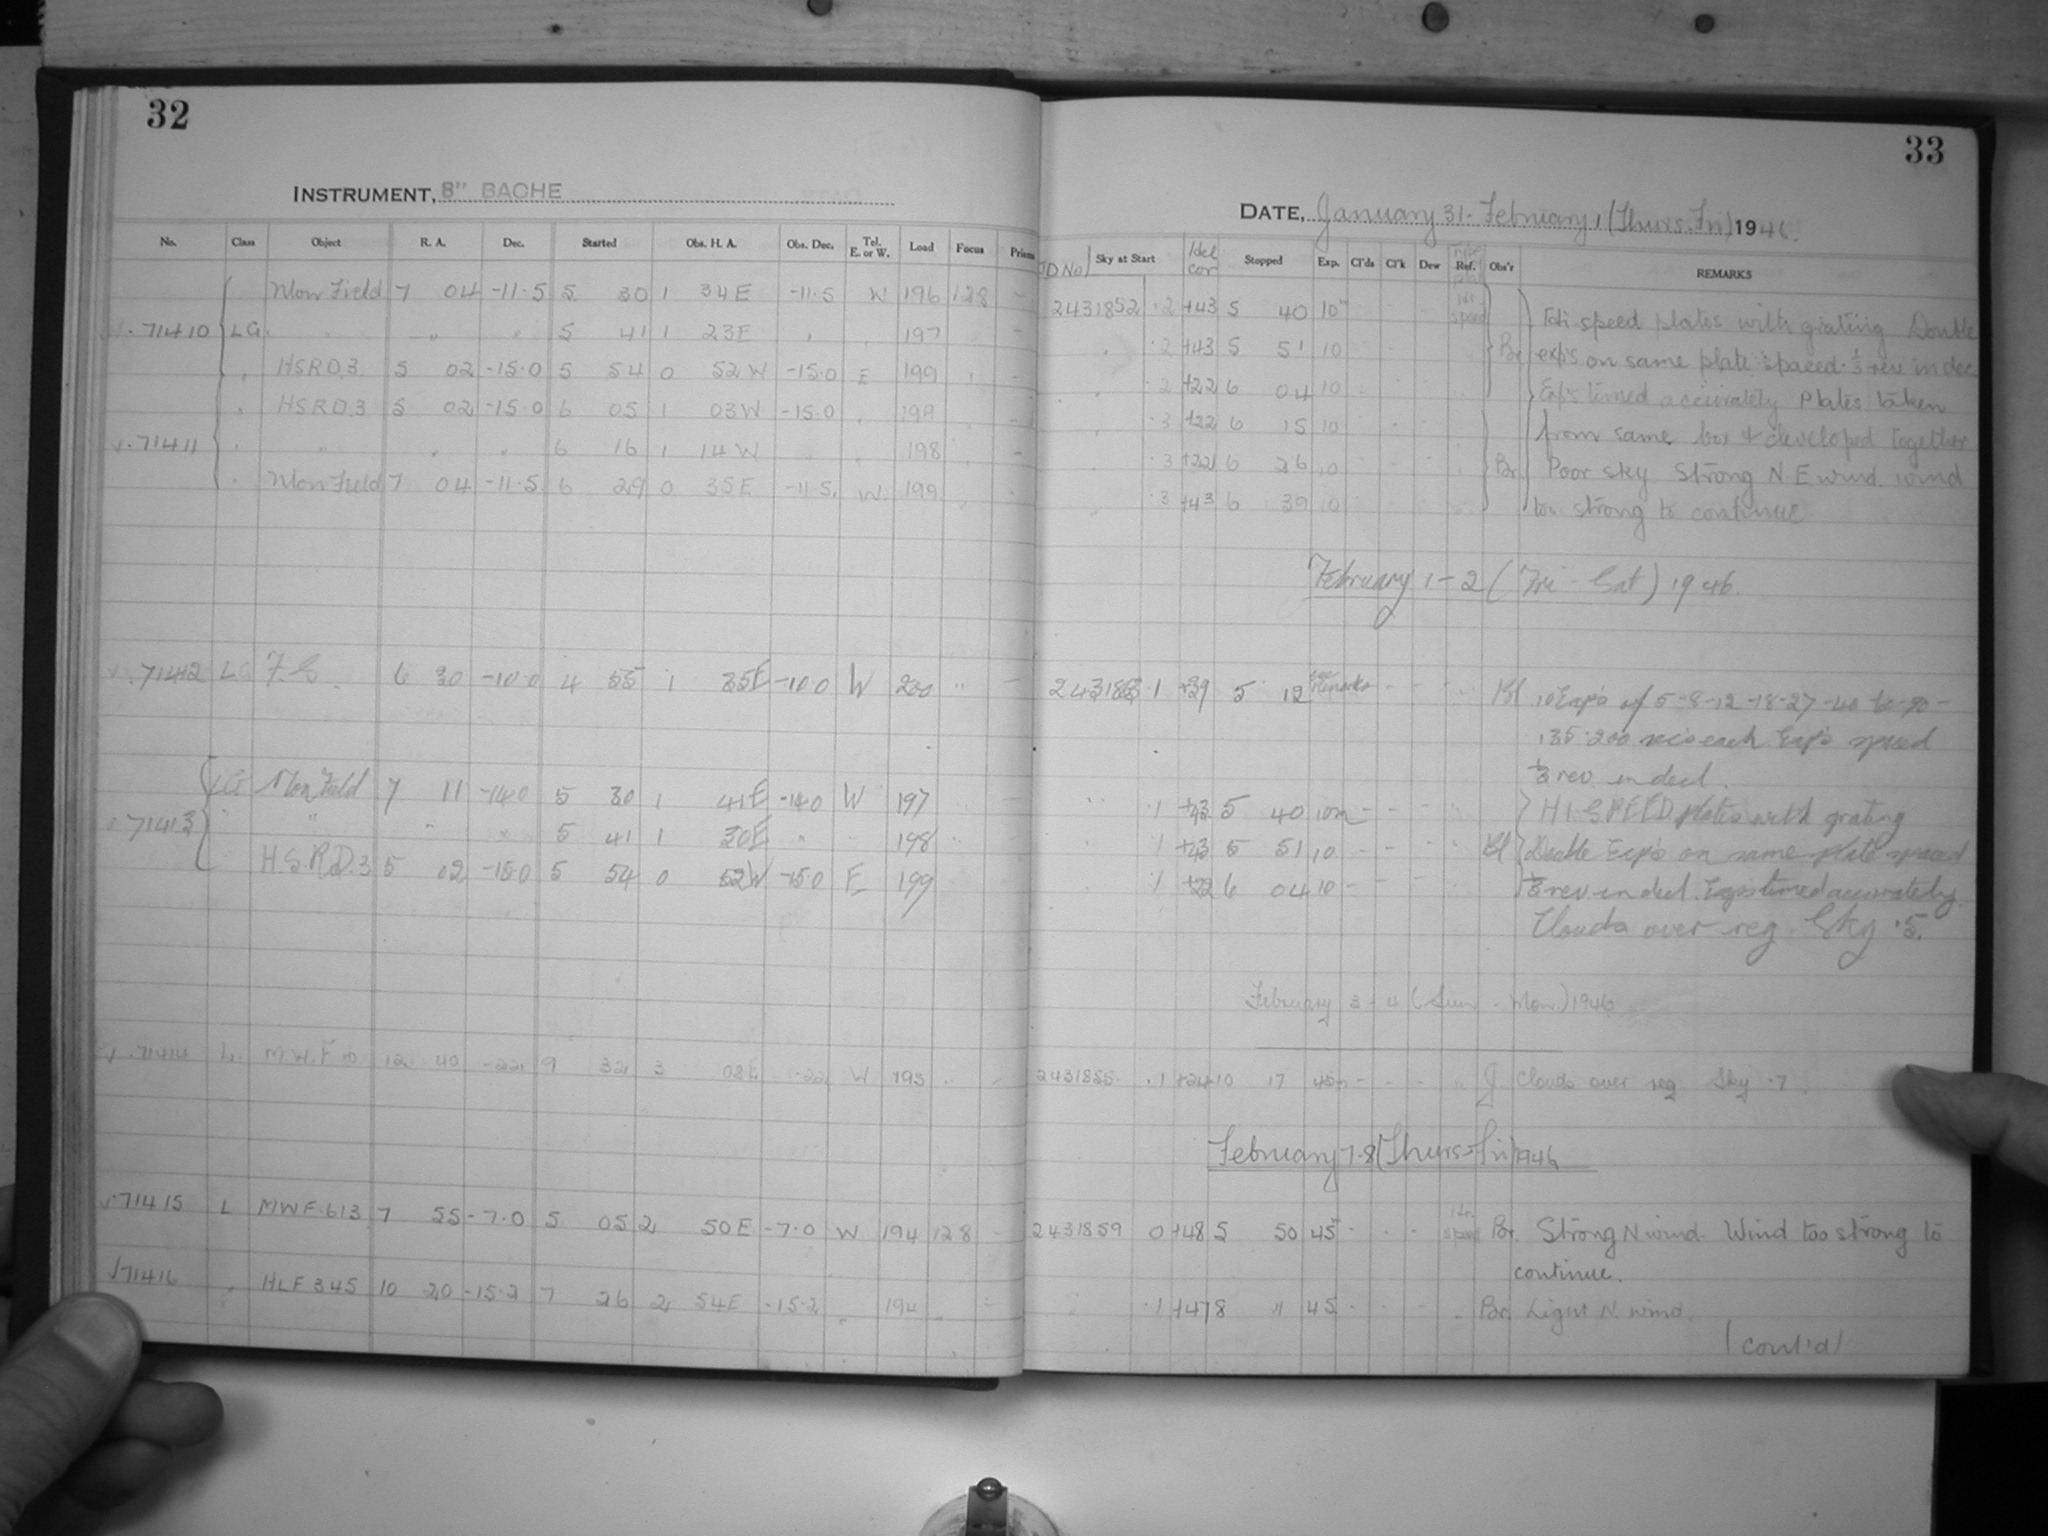 32
INSTRUMENT, 8" BACHE
No. Class Object R. A. Dec. Started Obs. H. A. Obs. Dec. Tel. E. or W. Load Focus Prism
Mon Field 7 04 -11.5 5 30 1 34E -11.5 W 196 128 -
71410 LG. " " " 5 41 1 23E " " 197 -
" HSRD.3 5 02 -15.0 5 54 0 52W -15.0 E 199 " -
" HSRD.3 5 02 -15.0 6 05 1 03W -15.0 " 199 " -
71411 " " " " 6 16 1 14W 198 " -
" Mon Field 7 04 -11.5 6 29 0 35E -11.5 W. 199 " -
71412 LG F.G. 6 30 -10.0 4 55 1 35E -10.0 W 200 " -
LG Mon Field 7 11 -14.0 5 30 1 41E -14.0 W 197 " -
71413 " " " " 5 41 1 30E " " 198 " -
H.S.R.D.3 5 02 -15.0 5 54 0 52W -15.0 E 199 " -
71414 L. M.W.F. 12 40 -22 9 32 3 08E -22 W 193 " -
71415 L MWF.613 7 55 -7.0 5 05 2 50E -7.0 W 194 128 -
71416 " HLF345 10 20 -15.2 7 26 2 54E -15.2 " 194 " -
33
DATE, January 31-February 1 (Thurs.Fri) 1946.
JD No Sky at Start Stopped Exp. Cl'ds Cl'k Dew Ref. Obs'r REMARKS
2431852 .2 +43 5 40 10m Hi-speed plates with grating Double
" .2 +43 5 51 10 Br. exp's on same plate spaced ½ rev in dec
" .2 +22 6 04 10 Exp's timed accurately Plates taken
" .3 +22 6 15 10 from same box & developed together
" .3 +22 6 26 10 Br. Poor sky Strong N.E wind. wind
" .3 +43 6 39 10 too strong to continue
February 1-2 (Fri-Sat) 1946.
2431853 .1 +39 5 12 See Remarks - - " Bl 10 Exp's of 5-8-12-18-27-40-60-90-
135-200 sec's each Exp's spaced
½ rev in decl.
" .1 +43 5 40 10m - - - " HI-SPEED plates with grating
" .1 +43 5 51 10 - - - " Bl Double Exp's on same plate spaced
" .1 +22 6 04 10 - - - ½ rev in decl. Exp's timed accurately.
Clouds over reg. Sky .5.
February 3-4 (Sun-Mon.) 1946
2431855 .1 +24 10 17 45m - - - " J Clouds over reg Sky .7.
February 7-8 (Thurs-Fri) 1946
2431859 0 +48 5 50 45 - - - Br. Strong N wind. Wind too strong to
continue.
" .1 +47 8 11 45 - - - " Br. Light N. wind.
(cont'd)